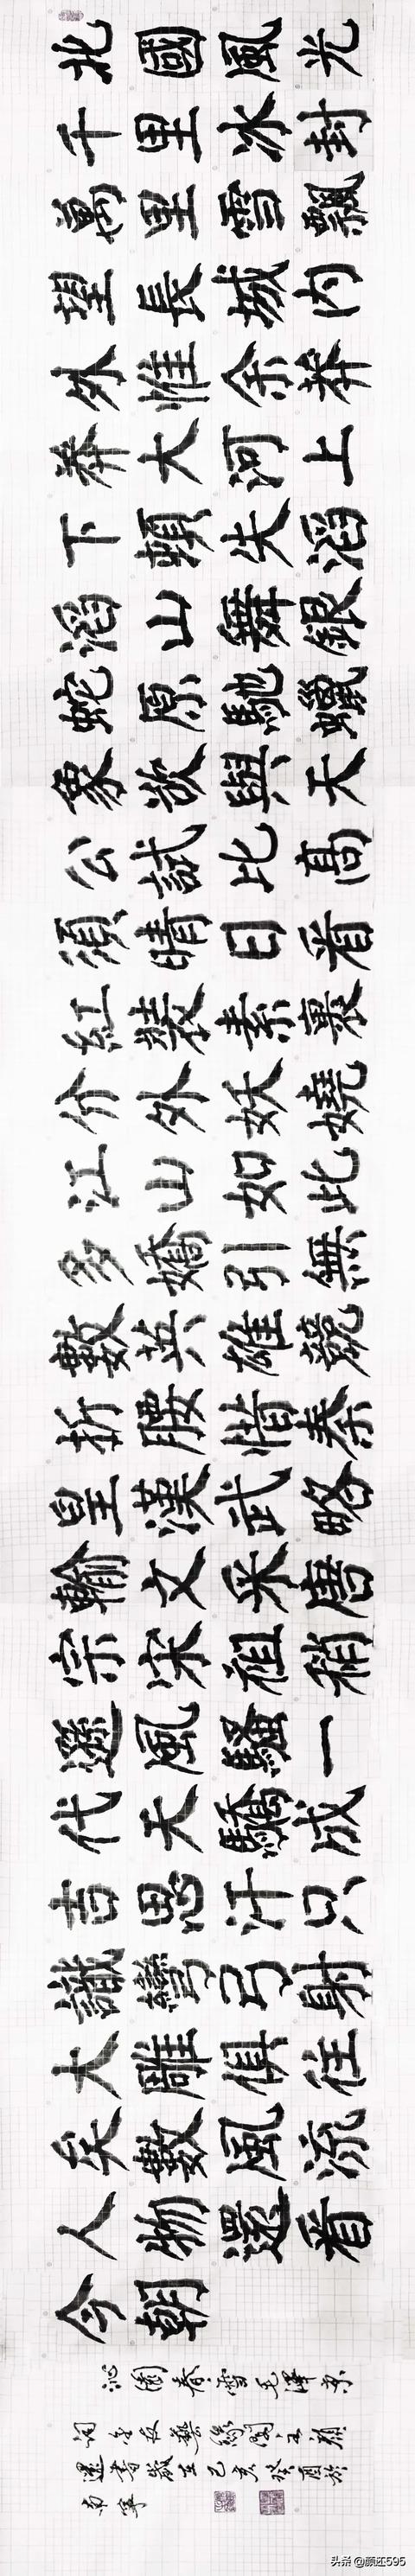 北國風光
千里冰封
萬里雪飄
望長城内
外惟余莽
莽大河上
下頓失滔
滔山舞銀
蛇原馳蠟
象欲與天
公試比高
須晴日看
紅裝素裹
分外妖嬈
江山如此
多嬌引無
數英雄競
折腰惜秦
皇漢武略
輸文采唐
宗宋祖稍
遜風騷一
代天驕成
吉思汗只
識彎弓射
大雕俱往
矣數風流
人物還看
今朝
沁園春雪毛澤東
詞友藝緣閣主顏
還書歲在己亥癸酉於
南寧
头条 @颜还595